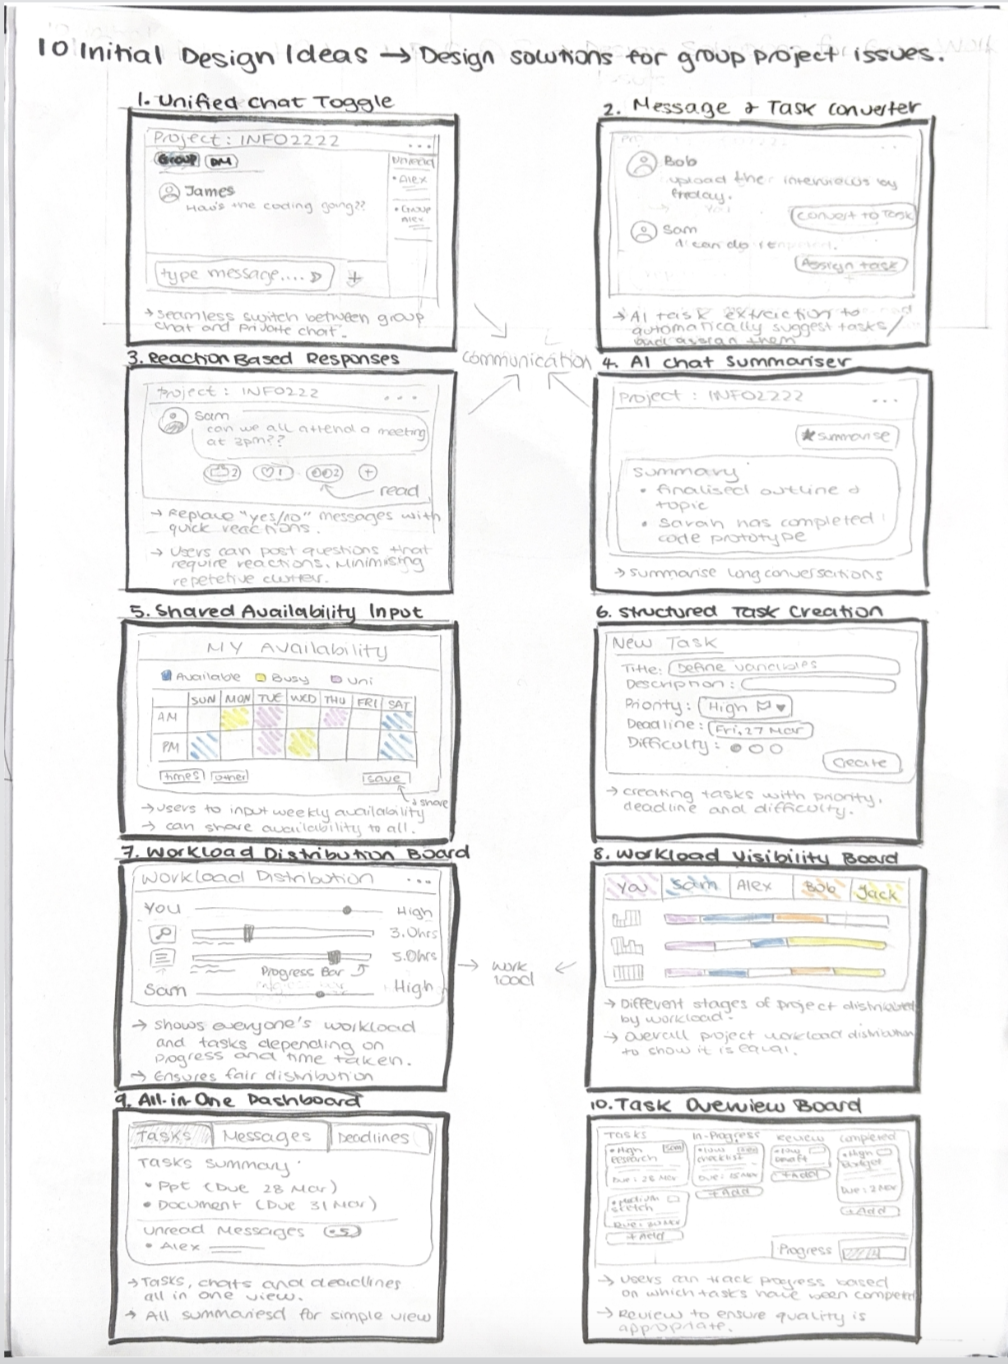 10 Initial Design Ideas → Design solutions for group project issues.
1. Unified Chat Toggle
Project: INFO2222
...
Group
DM
Unread
• Alex
• Group
Alex
James
How's the coding going??
type message....
→ seamless switch between group
chat and private chat.
2. Message & Task Converter
Bob
upload the interviews by
Friday.
convert to Task
Sam
I can do
Assign task
→ AI task extraction to
automatically suggest tasks/
and assign them
communication
3. Reaction Based Responses
Project: INFO222
...
Sam
can we all attend a meeting
at 3pm??
2
1
2
+
read
→ Replace "yes/no" messages with
quick reactions.
→ Users can post questions that
require reactions. Minimising
repetetive clutter.
4. AI Chat Summariser
Project: INFO2222
...
★ summarise
summary
• finalised outline &
topic
• Sarah has completed
code prototype
→ summarise long conversations
5. Shared Availability Input
MY Availability
Available
Busy
Uni
SUN MON TUE WED THU FRI SAT
AM
PM
times
save
↓ share
→ users to input weekly availability
→ can share availability to all.
6. Structured Task Creation
New Task
Title: Define variables
Description:
Priority: High
Deadline: Fri, 27 Mar
Difficulty:
Create
→ creating tasks with priority,
deadline and difficulty.
7. Workload Distribution Board
Workload Distribution
...
YOU
High
3.0hrs
5.0hrs
Progress Bar
Sam
High
→ shows everyone's workload
and tasks depending on
progress and time taken.
→ Ensures fair distribution
→ work
load ←
8. Workload Visibility Board
You Sam Alex Bob Jack
→ Different stages of project distributed
by workload.
→ overall project workload distribution
to show it is equal.
9. All-in-One Dashboard
Tasks Messages Deadlines
Tasks summary
• Ppt (Due 28 Mar)
• Document (Due 31 Mar)
unread Messages
5
• Alex
→ Tasks, chats and deadlines
all in one view.
→ All summariesd for simple view
10. Task Overview Board
Tasks In-Progress Review Completed
• High
research
Due: 28 Mar
• Medium
sketch
+ Add
• low
checklist
+ Add
• low
Draft
+ Add
• High
Budget
Due: 2 Mar
+ Add
Progress
→ users can track progress based
on which tasks have been completed
→ Review to ensure quality is
appropriate.